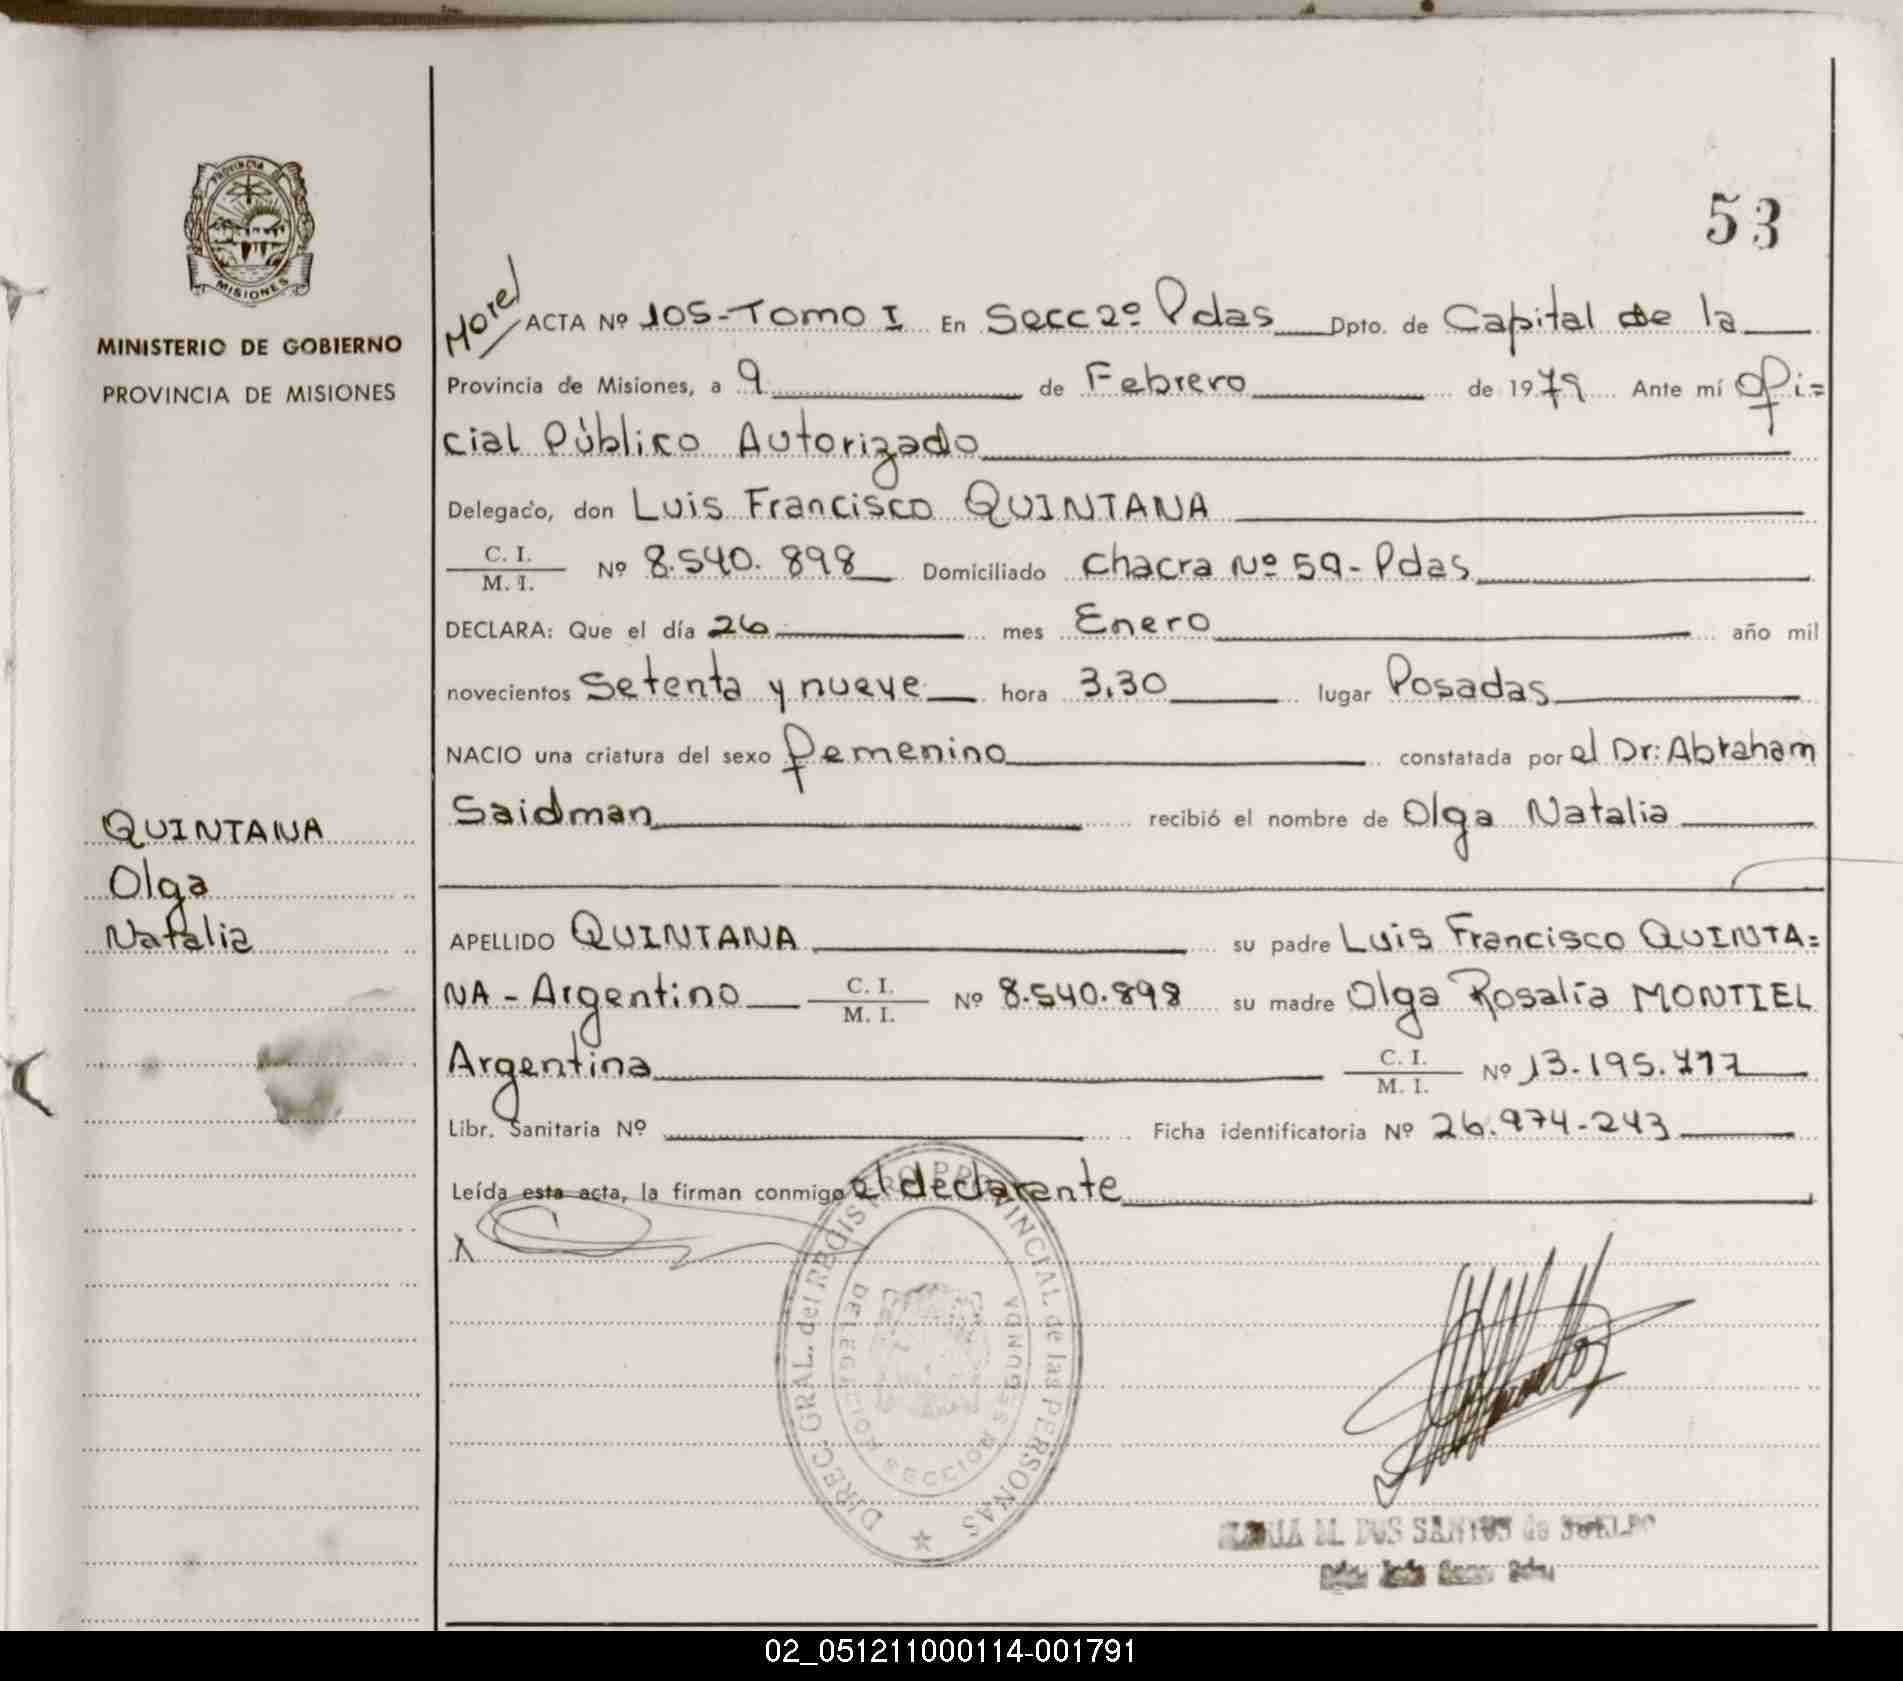 PROVINCIA DE
MISIONES
MINISTERIO DE GOBIERNO
PROVINCIA DE MISIONES
53
Morel
ACTA Nº 105-Tomo I En Secc 2º Pdas Dpto. de Capital de la
Provincia de Misiones, a 9 de Febrero de 1979 Ante mí Ofi=
cial Público Autorizado
Delegado, don Luis Francisco QUINTANA
C. I.
M. I. Nº 8.540.898 Domiciliado Chacra Nº 59-Pdas
DECLARA: Que el día 26 mes Enero año mil
novecientos Setenta y nueve hora 3,30 lugar Posadas
NACIO una criatura del sexo femenino constatada por el Dr: Abraham
Saidman recibió el nombre de Olga Natalia
QUINTANA
Olga
Natalia
APELLIDO QUINTANA su padre Luis Francisco QUINTA=
NA - Argentino C. I. M. I. Nº 8.540.898 su madre Olga Rosalía MONTIEL
Argentina C. I. M. I. Nº 13.195.777
Libr. Sanitaria Nº Ficha identificatoria Nº 26.974-243
Leída esta acta, la firman conmigo el declarante
X
DIREC. GRAL. del REGISTRO PROVINCIAL de las PERSONAS
DELEGACION SECCION SEGUNDA
M. DOS SANTOS de
02_051211000114-001791